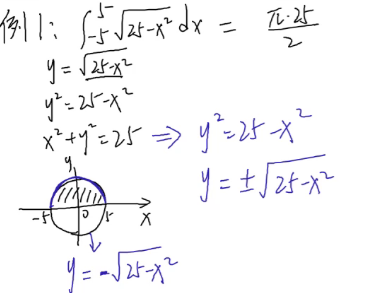 例1: ∫_{-5}^{5} √(25-x²) dx = π·25/2
y = √(25-x²)
y² = 25-x²
x²+y² = 25 ⇒ y² = 25-x²
y = ±√(25-x²)
y
-5 0 5 x
y = -√(25-x²)